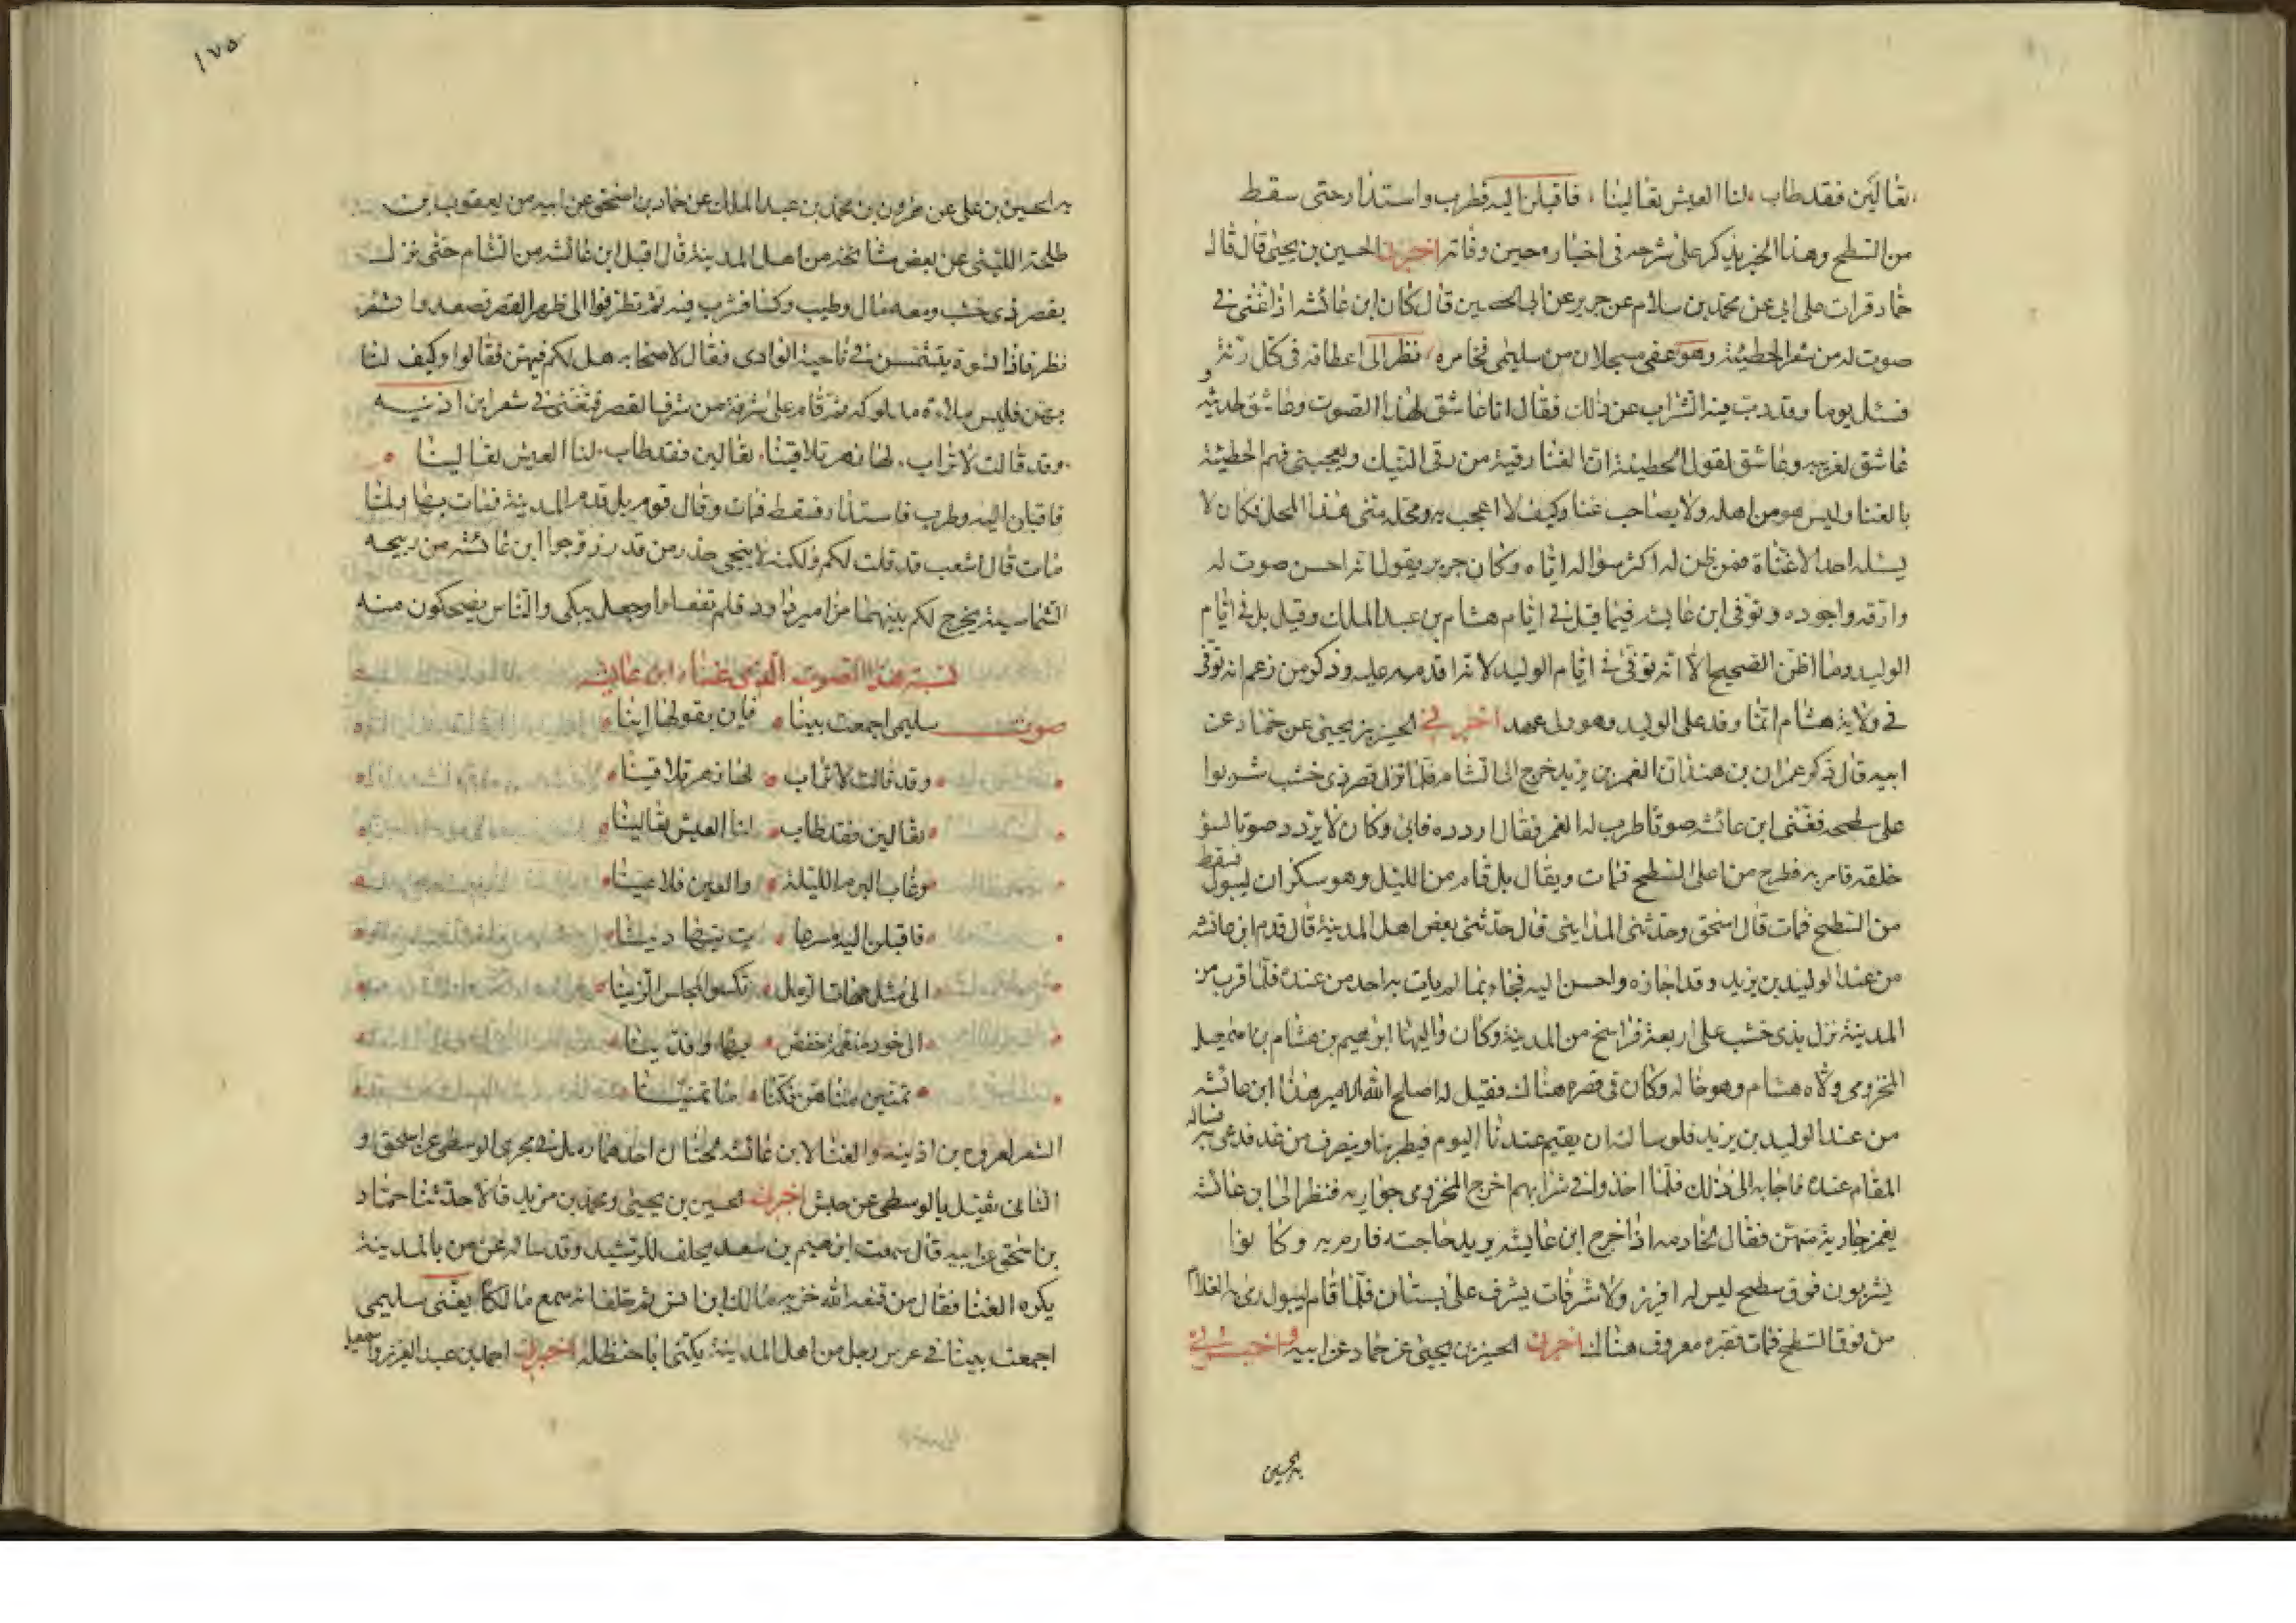 تعالين فقد طاب لنا العيش تعالينا فاقبلن اليه فطرب واستدار حتى سقط
من السطح وهذا الخبر يذكر على شرحه في اخباره حين وفاته اخبرنا الحسين بن يحيى قال قال
حماد قرات على ابي عن محمد بن سلام عن جرير عن ابي الحصين قال كان ابن عائشه اذا غنى في
صوت له من شعر الحطيئة وهو عفى مسحلان من سليمى فحامره نظر الى اعطافه في كل رنة
فسئل يوما وقد دب فيه الشراب عن ذلك فقال انا عاشق لهذا الصوت وعاشق لحديثه و
عاشق لغريبه وعاشق لقول الحطيئة ان الغنا رقية من رقى النيك ويعجبني فهم الحطيئة
بالغنا وليس هو من اهله ولا بصاحب غنا وكيف لا اعجب به ومحله منى هذا المحل فكان لا
يسئله احد الا غناه فمن فطن له اكثر سؤاله اياه وكان جرير يقول انه احسن صوت له
وارقه واجوده وتوفى ابن عايشه فيما قيل في ايام هشام بن عبد الملك وقيل بل في ايام
الوليد وما اظن الصحيح الا انه توفى في ايام الوليد لانه اقدمه عليه وذكر من زعم انه توفى
في ولاية هشام انما وفد على الوليد وهو ولى عهد اخبرني الحسين بن يحيى عن حماد عن
ابيه قال ذكر عمران بن هند ان الغمر بن يزيد خرج الى الشام فلما نزل قصر ذي خشب شربوا
على سطحه فغنى ابن عائشه صوتا طرب له الغمر فقال اردده فابى وكان لا يردد صوتا لسؤ
خلقه فامر به فطرح من اعلى السطح فمات ويقال بل قام من الليل وهو سكران ليبول فسقط
من السطح فمات قال اسحق وحدثنى المدايني قال حدثني بعض اهل المدينة قال قدم ابن عائشه
من عند الوليد بن يزيد وقد اجازه واحسن اليه فجاء بما لم يات به احد من عنده فلما قرب من
المدينة نزل بذي خشب على اربعة فراسخ من المدينة وكان واليها ابرهيم بن هشام بن اسمعيل
المخزومى ولاه هشام وهو خاله وكان في قصره هناك فقيل له اصلح الله الامير هذا ابن عائشه
من عند الوليد بن يزيد فلو سالته ان يقيم عندنا اليوم فيطربنا وينصرف من غد فدعى به فساله
المقام عنده فاجابه الى ذلك فلما اخذوا في شرابهم اخرج المخزومى جواريه فنظر الى ابن عائشه
يغمز جارية منهن فقال لخادمه اذا خرج ابن عايشه يريد حاجته فارم به وكانوا
يشربون فوق سطح ليس له افريز ولا شرفات يشرف على بستان فلما قام ليبول رمى به الغلام
من فوق السطح فمات فقبره معروف هناك اخبرنا الحسين بن يحيى عن حماد عن ابيه واخبرني
به الحسين
١٧٥
به الحسين بن على عن هرون بن محمد بن عبد الملك عن حماد بن اسحق عن ابيه عن يعقوب بن
طلحة الليثى عن بعض مشايخه من اهل المدينة قال اقبل ابن عائشه من الشام حتى نزل
بقصر ذي خشب ومعه مال وطيب وكسا فشرب فيه ثم تطرفوا الى ظهر القصر فصعد وا ثم
نظر فاذا نسوة يتمشين في ناحية الوادى فقال لاصحابه هل لكم فيهن فقالوا وكيف لنا
بهن فلبس ملاءة مدلوكة ثم قام على شرفة من شرف القصر فتغنى في شعر ابن اذينه
وقد قالت لاتراب لها زهر تلاقينا تعالين فقد طاب لنا العيش تعالينا
فاقبلن اليه وطرب فاستدار فسقط فمات وقال قوم بل قدم المدينة فمات بها ولما
مات قال اشعب قد قلت لكم ولكنه لا ينجى حذر من قدر زوجوا ابن عائشه من ربيحه
الشماسيه يخرج لكم بينهما مزامير داود فلم تفعلوا وجعل يبكى والناس يضحكون منه
نسبه هذا الصوت الذى غناه ابن عايشه
صوت سليمى اجمعت بينا فاين بقولها اينا
وقد قالت لاتراب لها زهر تلاقينا
تعالين فقد طاب لنا العيش تعالينا
وغاب البرم الليلة والعين فلا عينا
فاقبلن اليه مسرعا ت يتهادينا
الى مثل مهاة الرمل تكسو المجلس الزينا
الى خود منعمة حففن بها وفدينا
تمنين مناهن فكنا ما تمنينا
الشعر لعروه بن اذينه والغنا لابن عائشه لحنان احدهما رمل في مجرى الوسطى عن اسحق و
الثانى ثقيل بالوسطى عن حبش اخبرنا الحسين بن يحيى ومحمد بن مزيد قالا حدثنا حماد
بن اسحق عن ابيه قال سمعت ابرهيم بن سعد يحلف للرشيد وقد ساله عمن بالمدينة
يكره الغنا فقال من قنعه الله خزيه مالك ابن انس ثم حلف انه سمع مالكا يغنى سليمى
اجمعت بينا في عرس رجل من اهل المدينة يكنى ابا حنظله اخبرنا احمد بن عبد العزيز واسمعيل